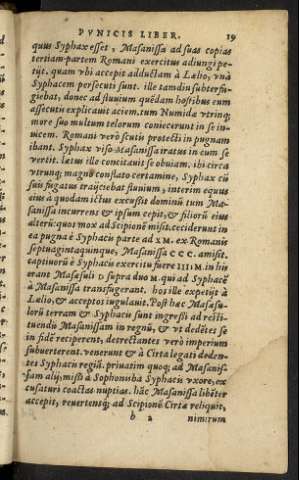 PVNICIS LIBER. 19
quus Syphax esset, Masanissa ad suas copias
tertiam partem Romani exercitus adiungi pe-
tijt. quam vbi accepit adductam à Lælio, vnà
Syphacem persecuti sunt. ille tamdiu subterfu-
giebat, donec ad fluuium quẽdam hostibus eum
assecutis explicauit aciem. tum Numidæ vtrinq;
more suo multum telorum coniecerunt in se in-
uicem. Romani verò scutis protecti in pugnam
ibant. Syphax viso Masanissa iratus in eum se
vertit. lætus ille concitauit se obuiam. ibi circa
vtrunq; magno conflato certamine, Syphax cũ
suis fugatus traijciebat fluuium, interim equus
eius a quodam ictus excussit dominũ tum Ma-
sanissa incurrens & ipsum cepit, & filiorũ eius
alterũ: quos mox ad Scipionẽ misit. ceciderunt in
ea pugna è Syphacis parte ad XM. ex Romanis
septuagintaquinque, Masanissa CCC. amisit.
captiuorũ è Syphacis exercitu fuere IIIIM. in his
erant Masæsuli D. supra duo M. qui ad Syphacẽ
à Masanissa transfugerant. hos ille expetijt à
Lælio, & acceptos iugulauit. Post hæc Masæsu-
lorũ terram & Syphacis sunt ingressi ad resti-
tuendũ Masanissam in regnũ, & vt deditos se
in fidẽ reciperent, detrectantes verò imperium
subuerterent. venerunt & à Cirta legati deden-
tes Syphacis regiã. priuatim quoq; ad Masanis-
sam alij missi à Sophonisba Syphacis vxore, ex
cusaturi coactas nuptias. hãc Masanissa libẽter
accepit, reuertensq; ad Scipionẽ Cirtæ reliquit,
b 2 nimirum